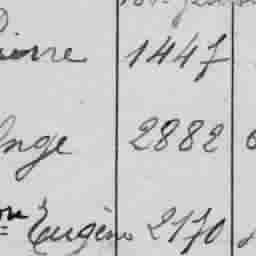 ierre 1447
Ange 2882
on Eugène 2170